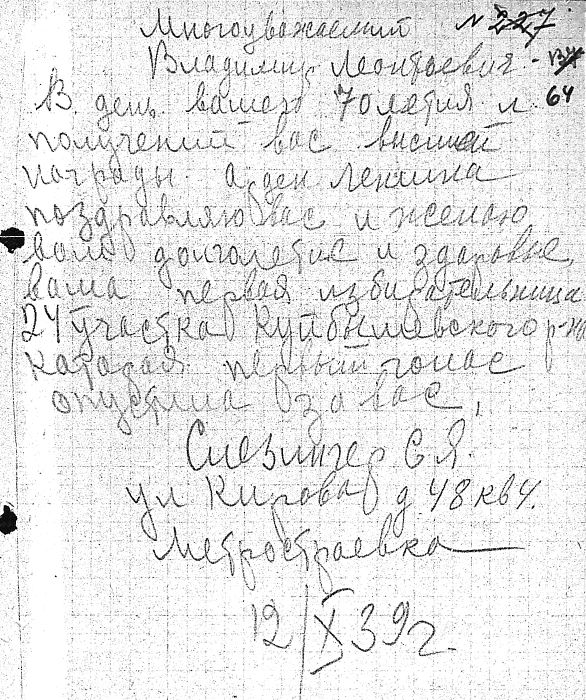 Многоуважаемий № 227
Владимир Леонтьевич 64
В день вашего 70летия и
получений вас высшей
награды арден Ленина
поздравляю вас и желаю
вам долголетие и здаровье,
ваша первая избирательница
24 участка Куйбышевского р-на
катарая первый голас
опустила за вас,
Слезингер С Я.
ул Кирова д 48 кв 4.
Метростраевка
12/X 39 г.